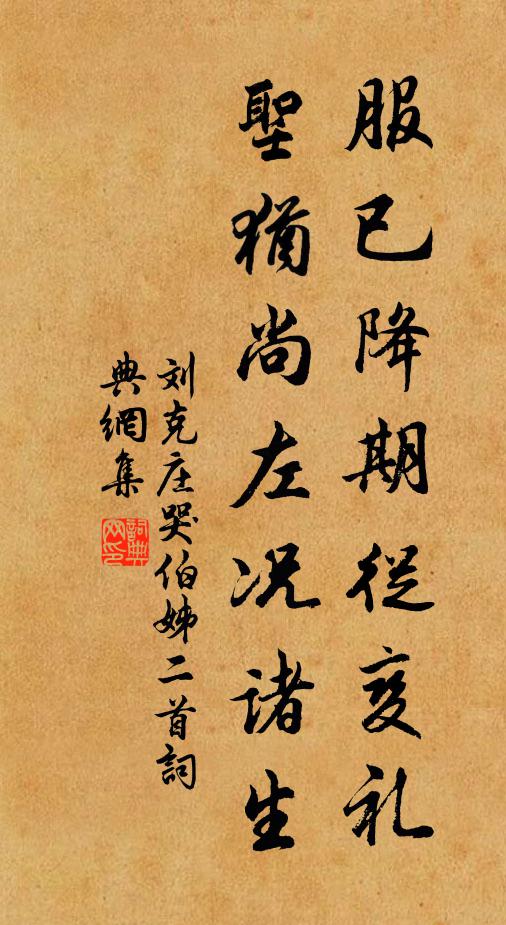 服已降期從变礼
聖猶尚左况诸生
刘克庄哭伯姊二首詞
典網集
詞典
网印